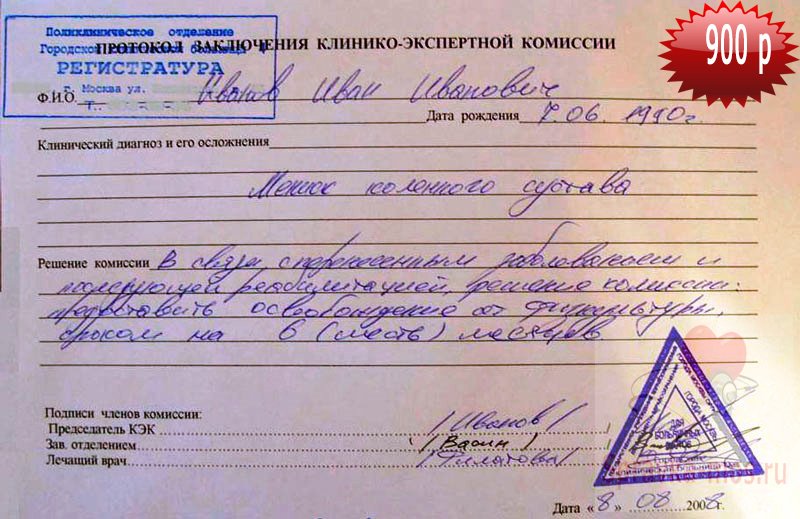 900 р
Поликлиническое отделение
Городской больницы
РЕГИСТРАТУРА
г. Москва ул.
Т.
ПРОТОКОЛ ЗАКЛЮЧЕНИЯ КЛИНИКО-ЭКСПЕРТНОЙ КОМИССИИ
Ф.И.О. Иванов Иван Иванович
Дата рождения 7.06.1990г.
Клинический диагноз и его осложнения
Мениск коленного сустава
Решение комиссии В связи с перенесенным заболеванием и
последующей реабилитацией, решение комиссии:
предоставить освобождение от физкультуры,
сроком на 6 (шесть) месяцев.
Подписи членов комиссии:
Председатель КЭК /Иванов/
Зав. отделением (Васин)
Лечащий врач (Филатова)
ГОРОДА МОСКВЫ
ДЛЯ
БОЛЬНИЧНЫХ
ЛИСТОВ
Дата «8» 08 2008г.